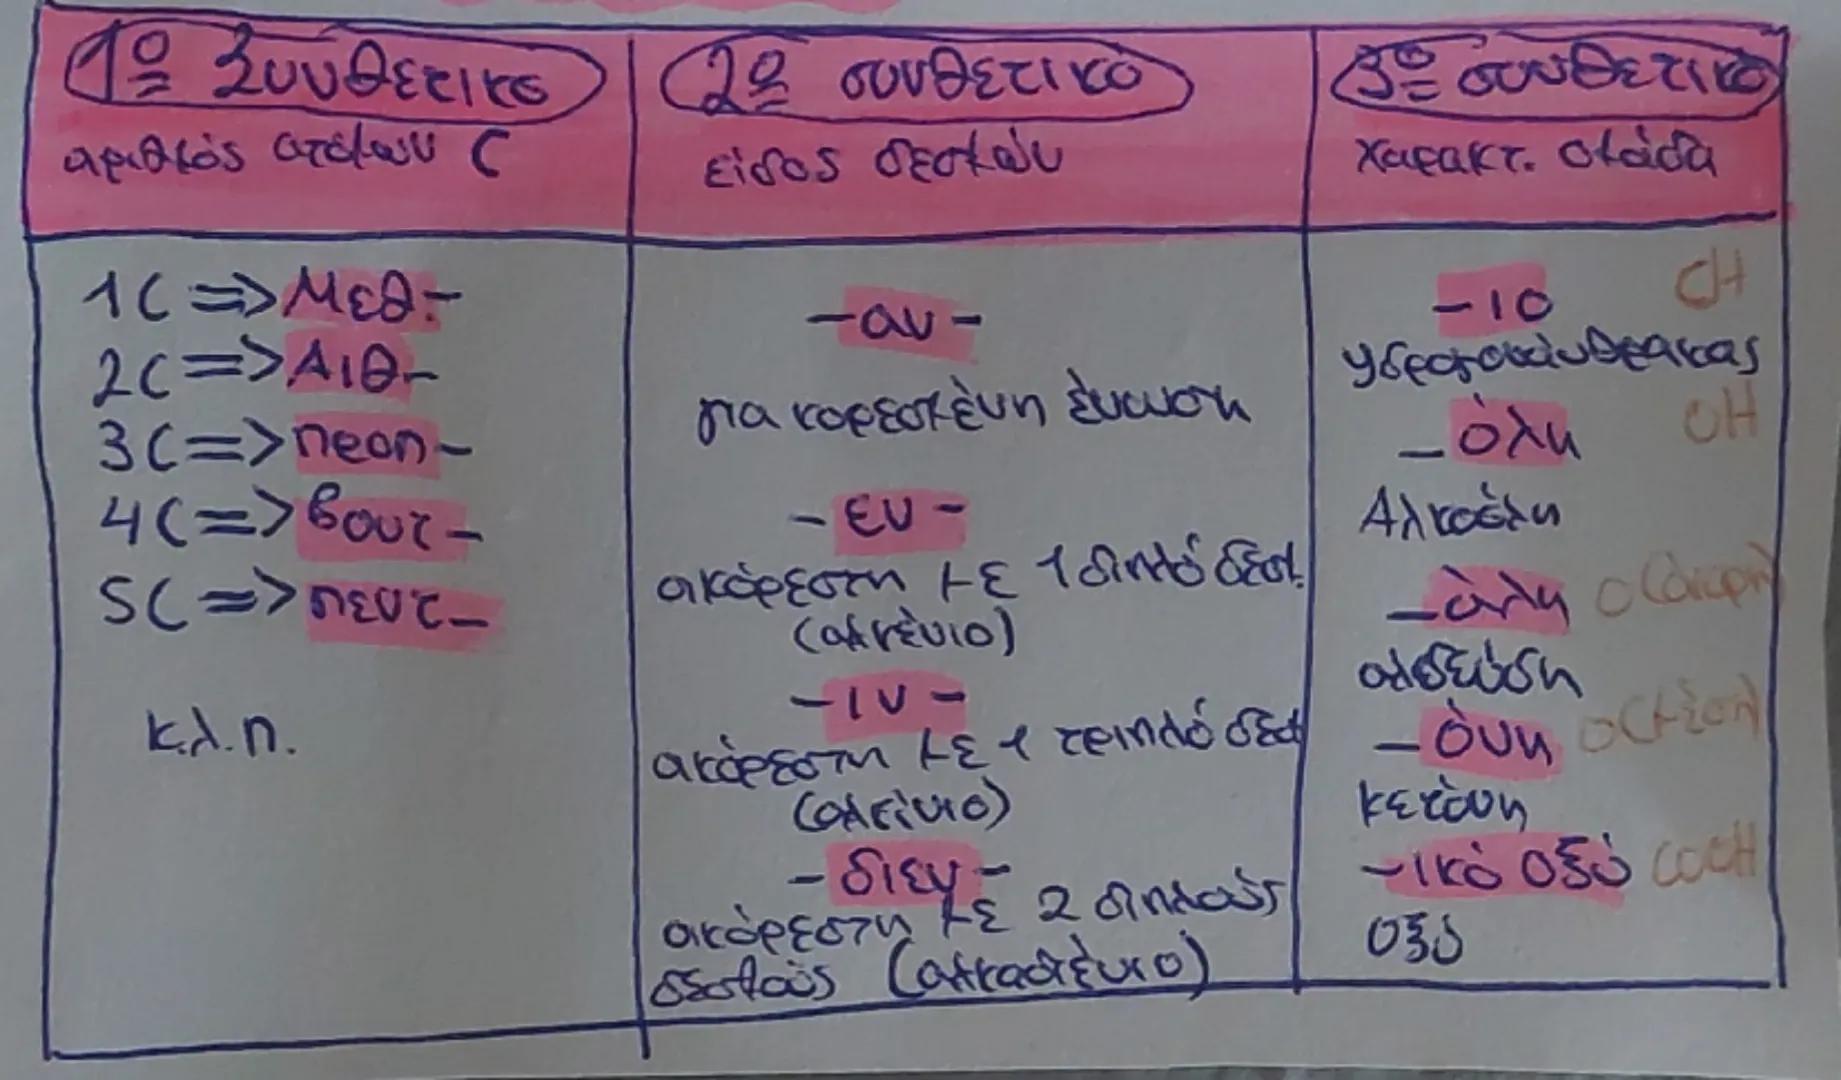 1º Συνθετικό
αριθμός ατόμων C
1C => Μεθ-
2C => Αιθ-
3C => προπ-
4C => βουτ-
5C => πεντ-
κ.λ.π.
2º συνθετικό
είδος δεσμών
-αν-
για κορεσμένη ένωση
-εν-
ακόρεστη με 1 διπλό δεσμ.
(αλκένιο)
-ιν-
ακόρεστη με 1 τριπλό δεσμ
(αλκίνιο)
-διεν-
ακόρεστη με 2 διπλούς
δεσμούς (αλκαδιένιο)
3º συνθετικό
χαρακτ. ομάδα
-ιο CH
υδρογονάνθρακας
-όλη OH
Αλκοόλη
-άλη O (άκρη)
αλδεΰδη
-όνη O (μέση)
κετόνη
-ικό οξύ COOH
οξύ